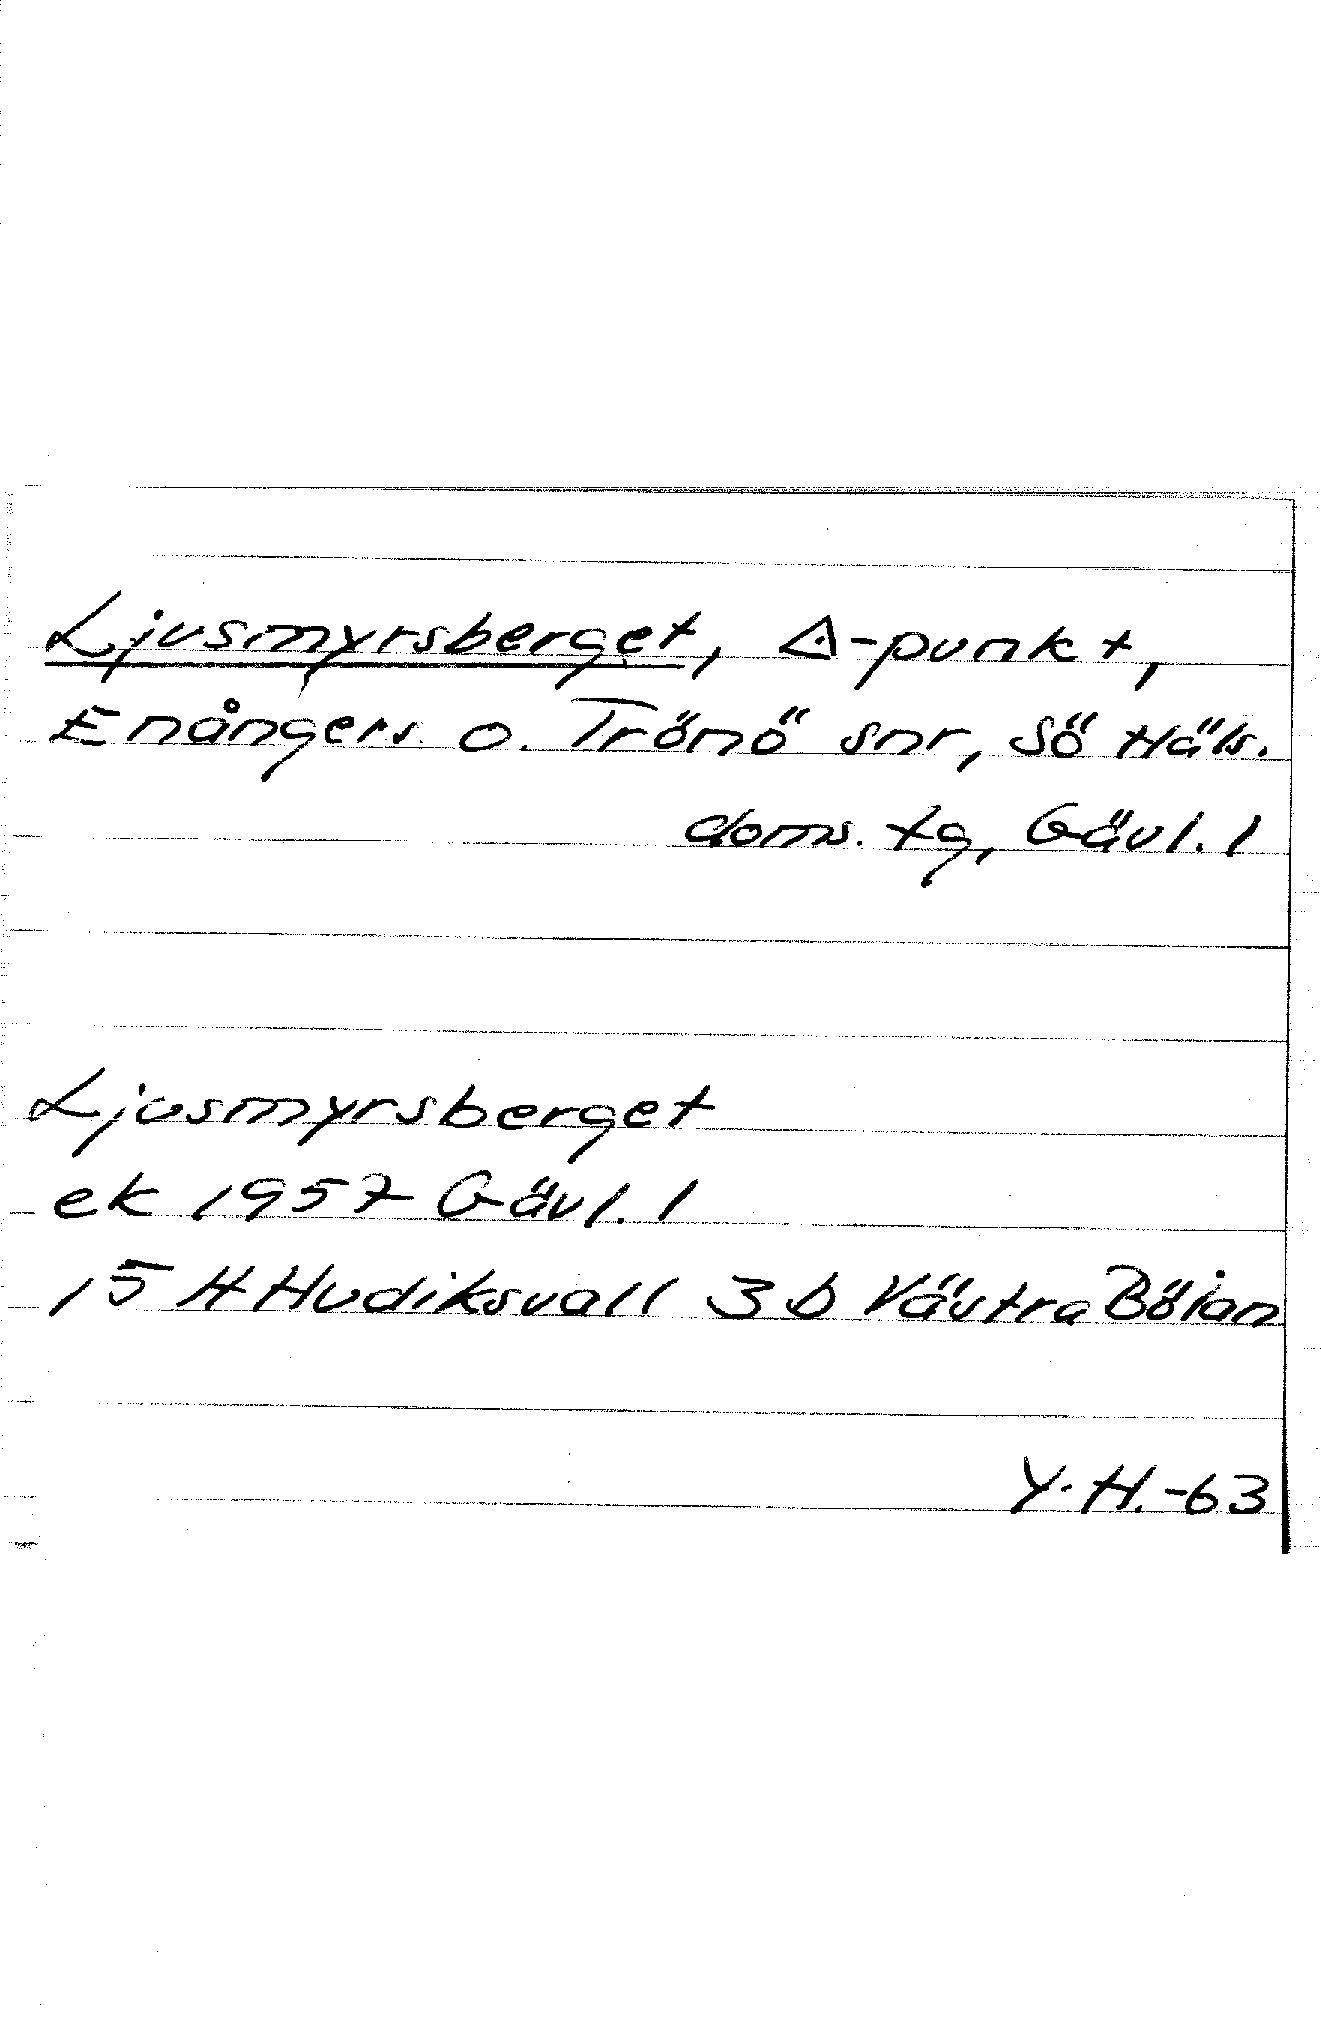 Ljusmyrsberget, △-punkt,
Enångers o. Trönö snr, Sö Häls.
doms. tg, Gävl. l
Ljusmyrsberget
ek 1957 Gävl. l
15 H Hudiksvall 3 b Västra Böian
Y. H. -63